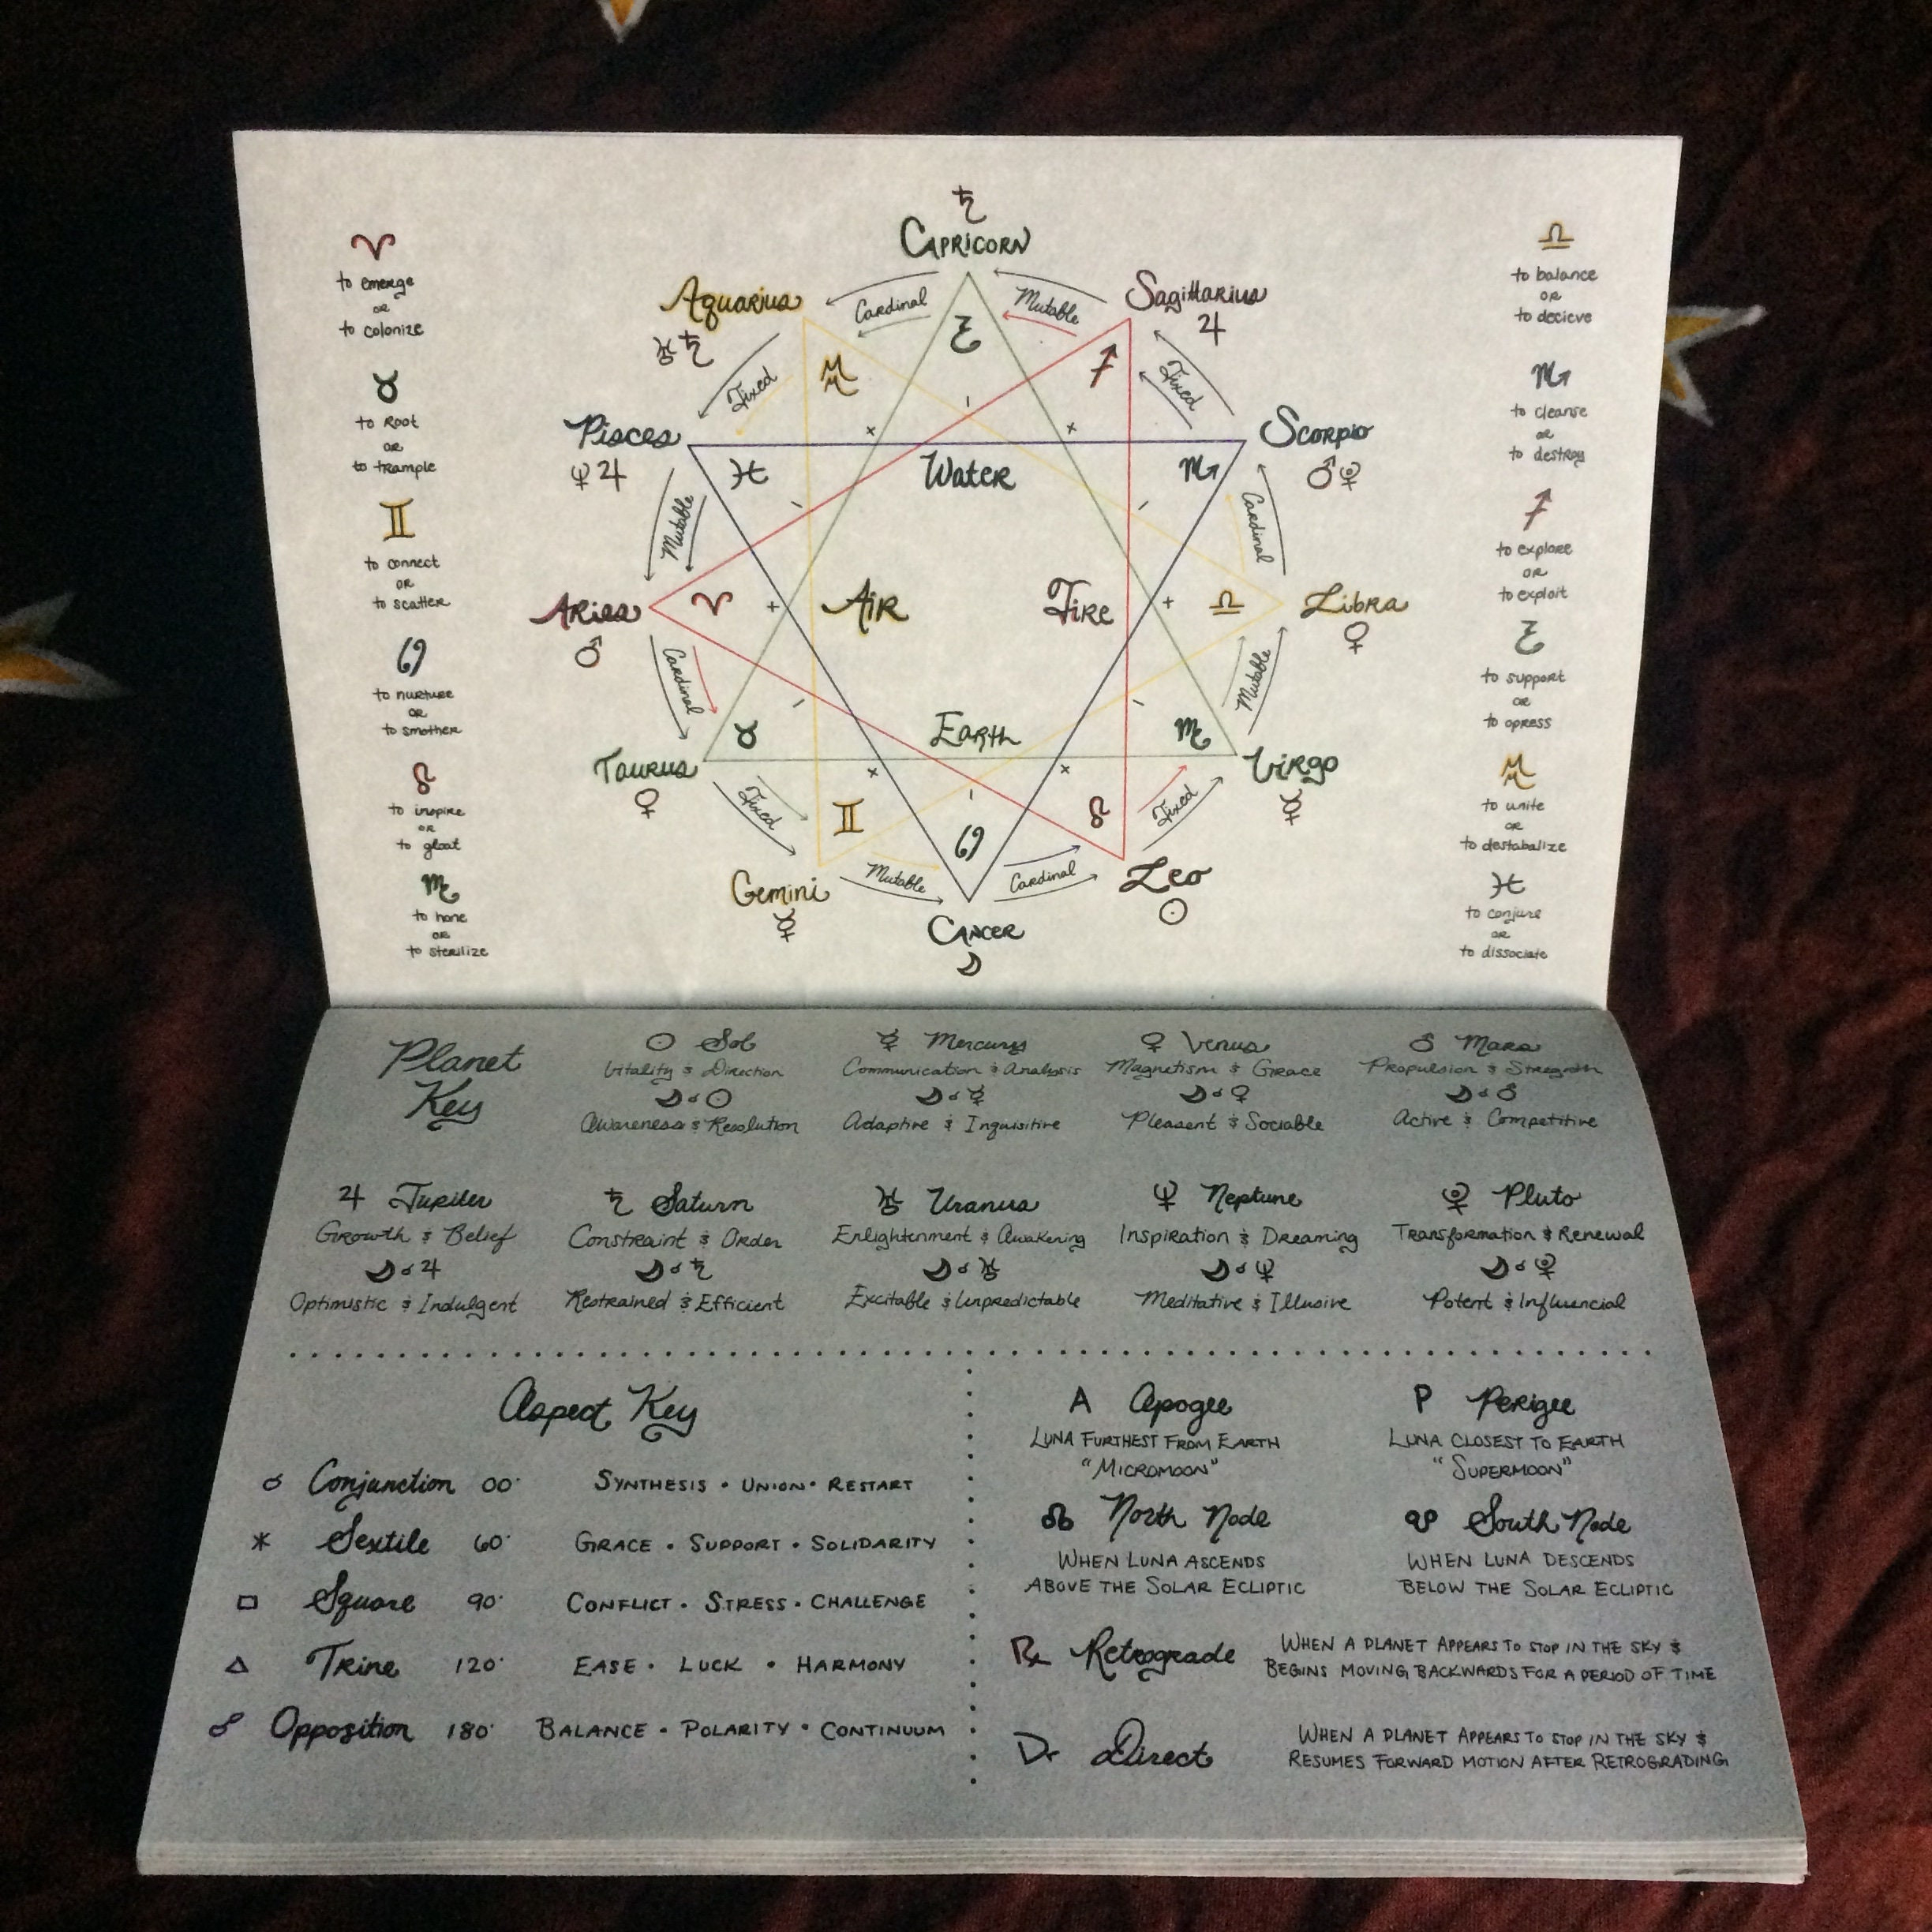 ♄
CAPRICORN
Aquarius
♅ ♄
Sagittarius
♃
Cardinal
Mutable
♑
♒
♐
Fixed
Fixed
Pisces
♆ ♃
♓
Water
♏
Scorpio
♂ ♇
Mutable
Cardinal
Aries
♂
♈
Air
Fire
♎
Libra
♀
Cardinal
Mutable
Taurus
♀
♉
Earth
♍
Virgo
☿
Fixed
Fixed
♊
♋
♌
Gemini
☿
Mutable
Cardinal
Leo
☉
CANCER
☽
♈
to emerge
or
to colonize
♉
to root
or
to trample
♊
to connect
or
to scatter
♋
to nurture
or
to smother
♌
to inspire
or
to gloat
♍
to hone
or
to sterilize
♎
to balance
or
to decieve
♏
to cleanse
or
to destroy
♐
to explore
or
to exploit
♑
to support
or
to opress
♒
to unite
or
to destabalize
♓
to conjure
or
to dissociate
Planet
Key
☉ Sol
Vitality & Direction
☽ ☌ ☉
Awareness & Resolution
☿ Mercury
Communication & Analysis
☽ ☌ ☿
Adaptive & Inquisitive
♀ Venus
Magnetism & Grace
☽ ☌ ♀
Pleasent & Sociable
♂ Mars
Propulsion & Strength
☽ ☌ ♂
Active & Competitive
♃ Jupiter
Growth & Belief
☽ ☌ ♃
Optimistic & Indulgent
♄ Saturn
Constraint & Order
☽ ☌ ♄
Restrained & Efficient
♅ Uranus
Enlightenment & Awakening
☽ ☌ ♅
Excitable & Unpredictable
♆ Neptune
Inspiration & Dreaming
☽ ☌ ♆
Meditative & Illusive
♇ Pluto
Transformation & Renewal
☽ ☌ ♇
Potent & Influencial
Aspect Key
☌ Conjunction 00° SYNTHESIS • UNION • RESTART
⚹ Sextile 60° GRACE • SUPPORT • SOLIDARITY
□ Square 90° CONFLICT • STRESS • CHALLENGE
△ Trine 120° EASE • LUCK • HARMONY
☍ Opposition 180° BALANCE • POLARITY • CONTINUUM
A Apogee
LUNA FURTHEST FROM EARTH
"MICROMOON"
P Perigee
LUNA CLOSEST TO EARTH
"SUPERMOON"
☊ North Node
WHEN LUNA ASCENDS
ABOVE THE SOLAR ECLIPTIC
☋ South Node
WHEN LUNA DESCENDS
BELOW THE SOLAR ECLIPTIC
℞ Retrograde
WHEN A PLANET APPEARS TO STOP IN THE SKY &
BEGINS MOVING BACKWARDS FOR A PERIOD OF TIME
Dr Direct
WHEN A PLANET APPEARS TO STOP IN THE SKY &
RESUMES FORWARD MOTION AFTER RETROGRADING